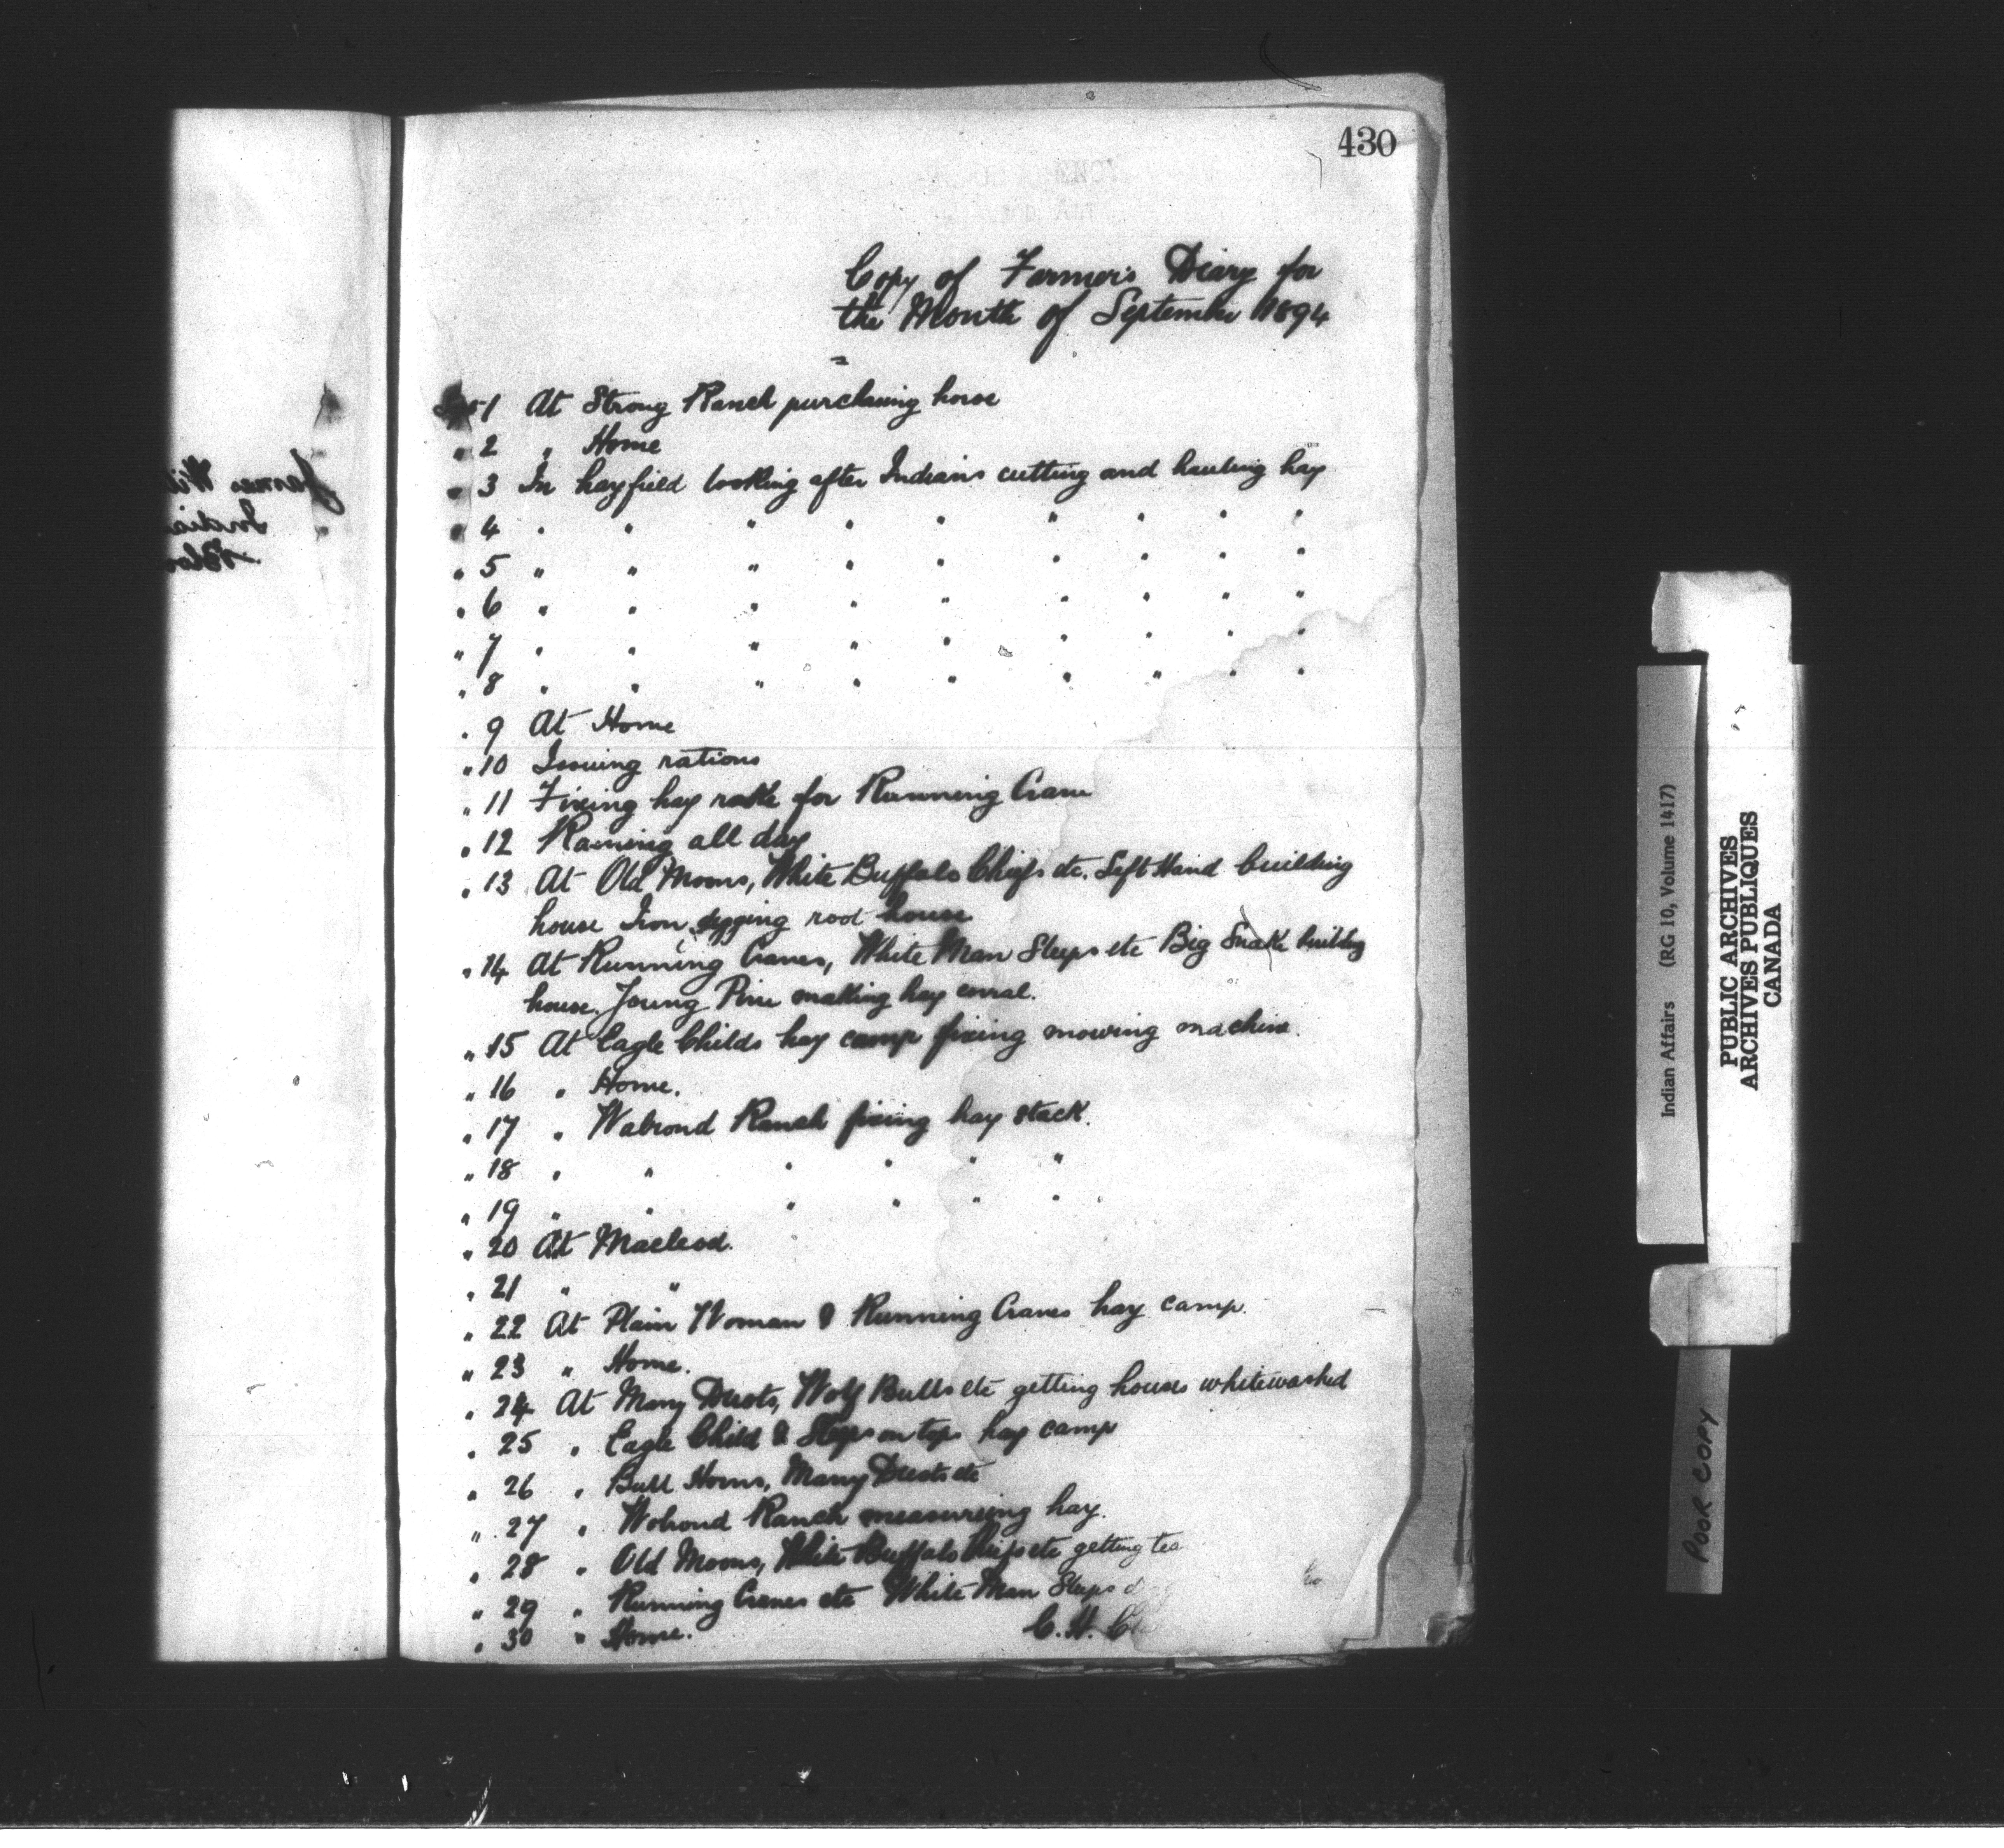 430
Copy of Farmer's Diary for
the Month of September 1894
Sept 1 At Strong Ranch purchasing horse
" 2 " Home
" 3 In hayfield looking after Indians cutting and hauling hay
" 4 " " " " " " " " "
" 5 " " " " " " " " "
" 6 " " " " " " " " "
" 7 " " " " " " " " "
" 8 " " " " " " " " "
" 9 At Home
" 10 Issuing rations
" 11 Fixing hay rake for Running Crane
" 12 Raining all day
" 13 At Old Moons, White Buffalo Chiefs etc. Left Hand building
house Iron digging root house
" 14 At Running Cranes, White Man Sleeps etc Big Snake building
house. Young Pine making hay corral.
" 15 At Eagle Childs hay camp fixing mowing machine.
" 16 " Home.
" 17 " Walrond Ranch fixing hay stack.
" 18 " " " " " "
" 19 " " " " " "
" 20 At Macleod.
" 21 " "
" 22 At Plain Woman & Running Cranes hay camp.
" 23 " Home.
" 24 At Many Dusts, Wolf Bulls etc getting houses whitewashed
" 25 " Eagle Child & Sleeps on tops hay camp
" 26 " Bull Horns, Many Dusts etc
" 27 " Wolrond Ranch measuring hay.
" 28 " Old Moons, White Buffalo Chiefs etc getting
" 29 " Running Cranes etc White Man Sleeps
" 30 " Home.
C. H.
PUBLIC ARCHIVES
ARCHIVES PUBLIQUES
CANADA
Indian Affairs (RG 10, Volume 1417)
POOR COPY